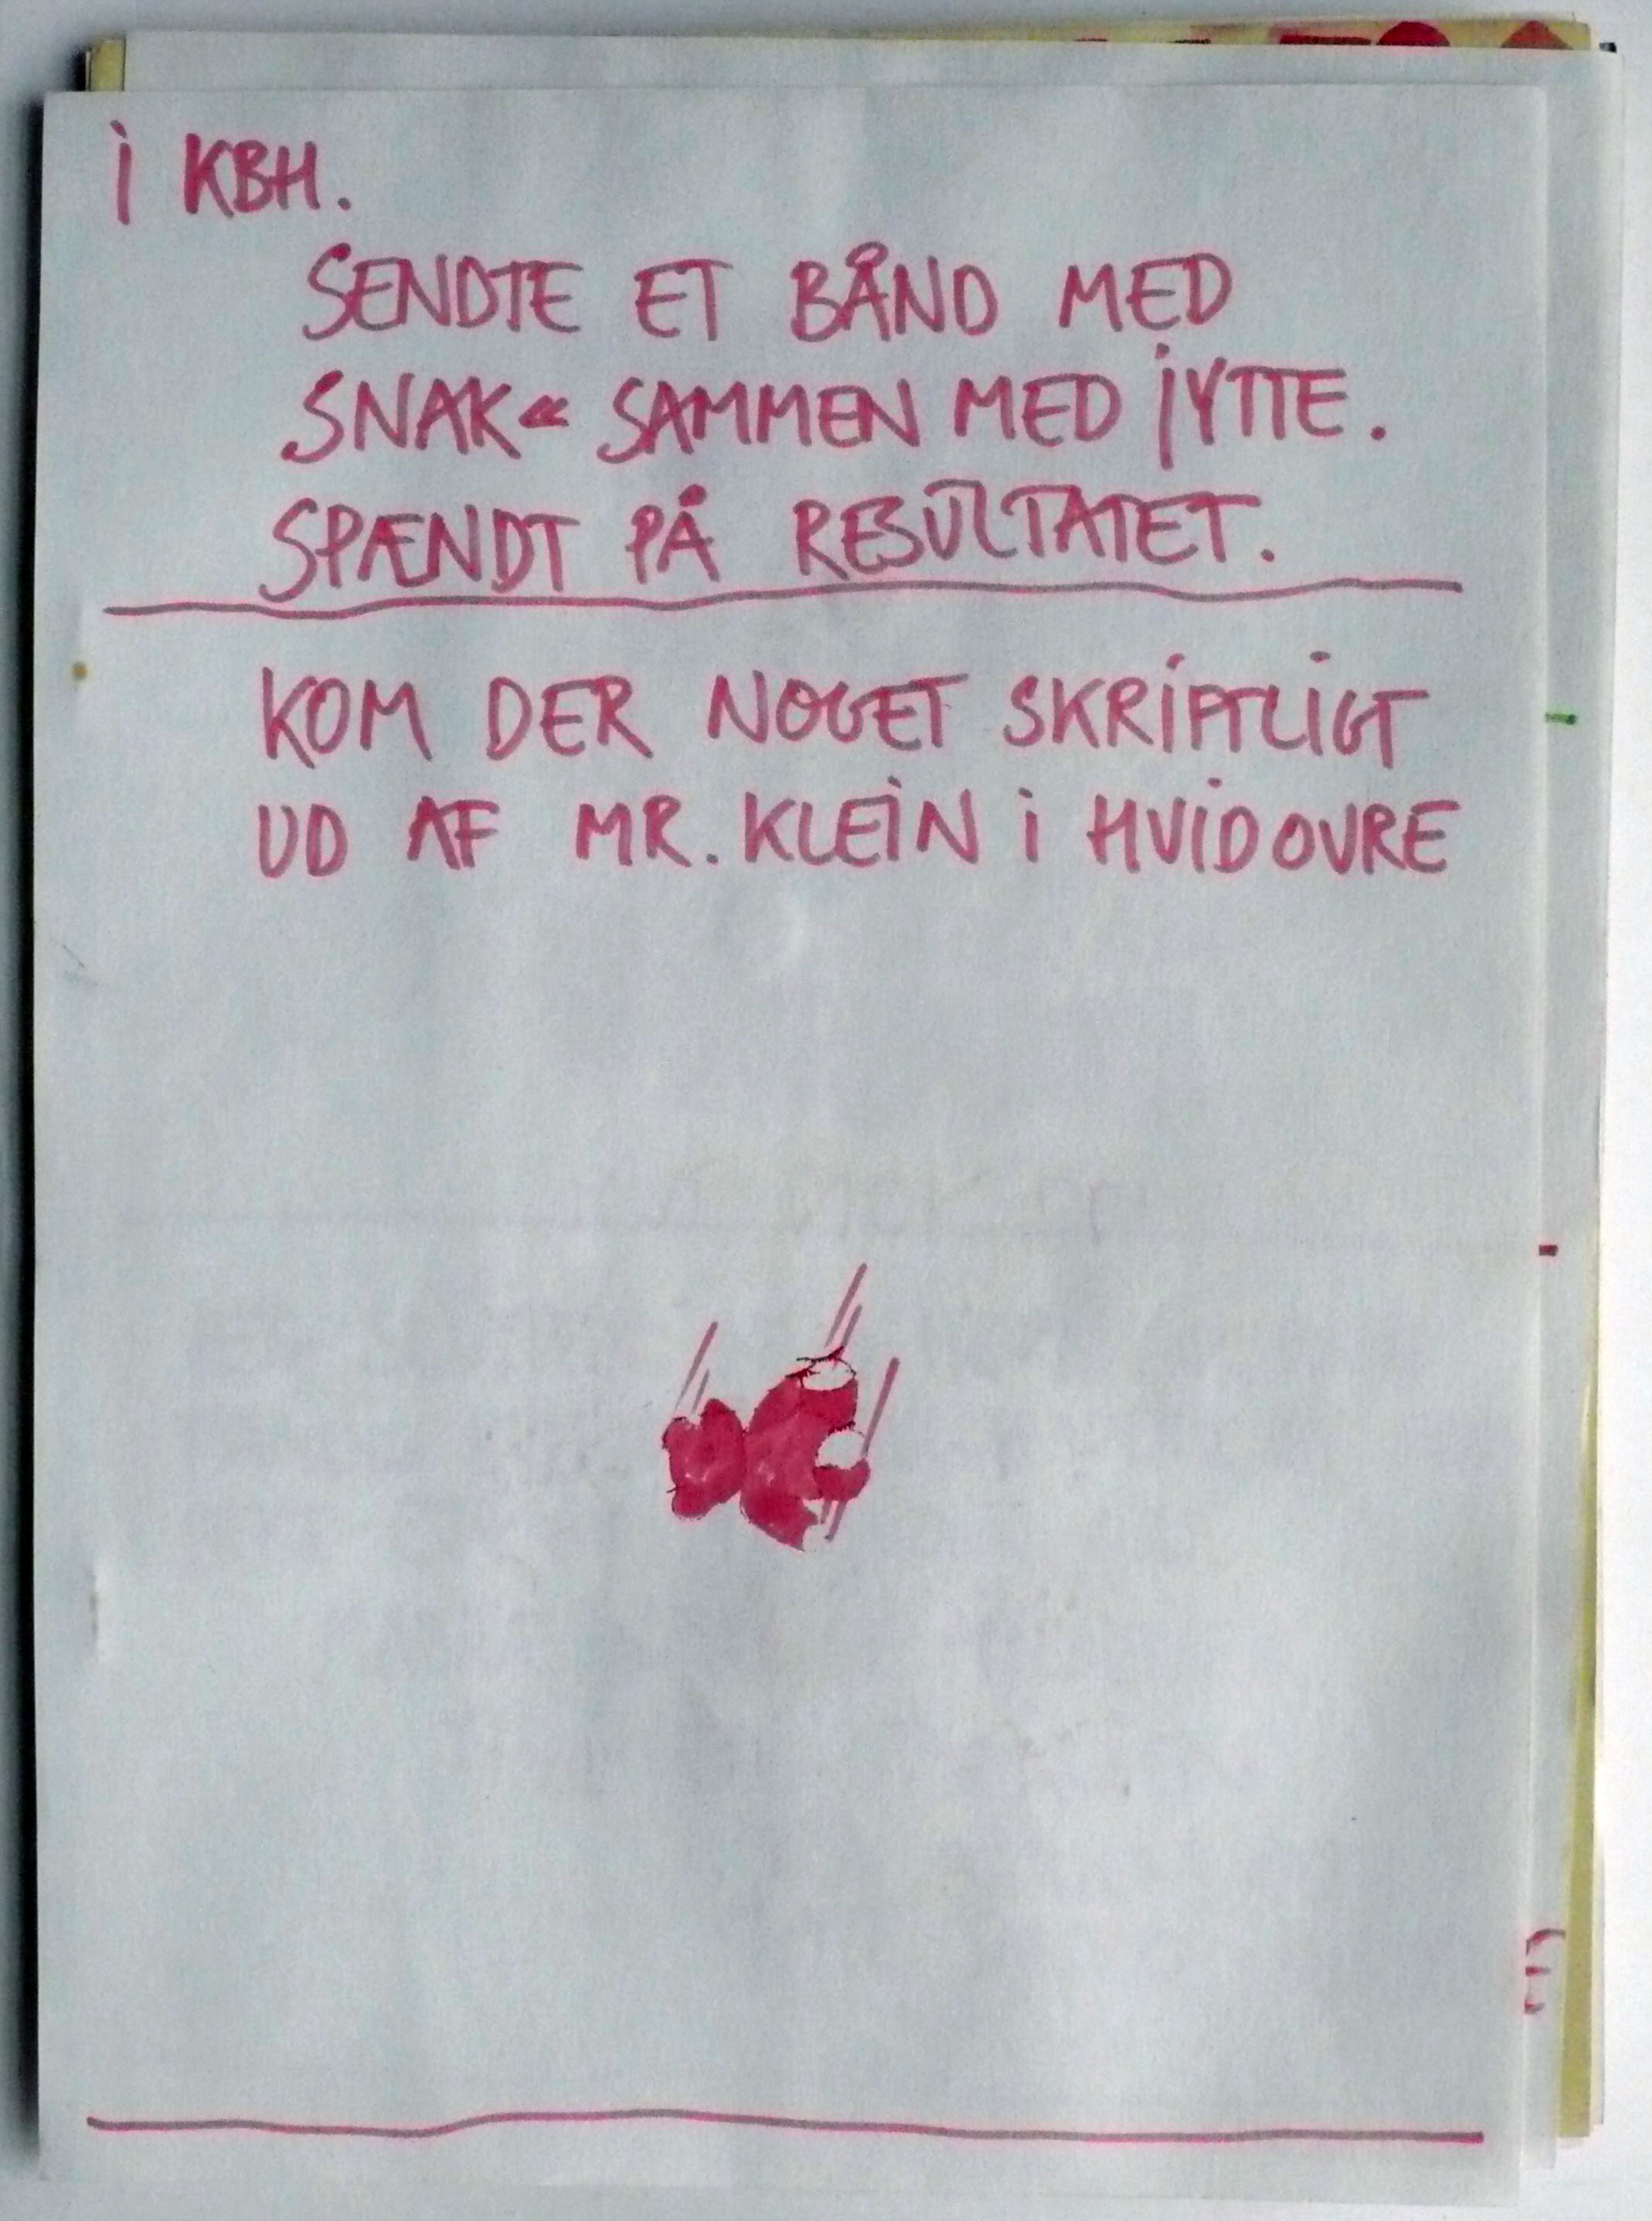 i KBH.
SENDTE ET BÅND MED
SNAK« SAMMEN MED JYTTE.
SPÆNDT PÅ RESULTATET.
KOM DER NOGET SKRIFTLIGT
UD AF MR. KLEIN i HVIDOVRE
E